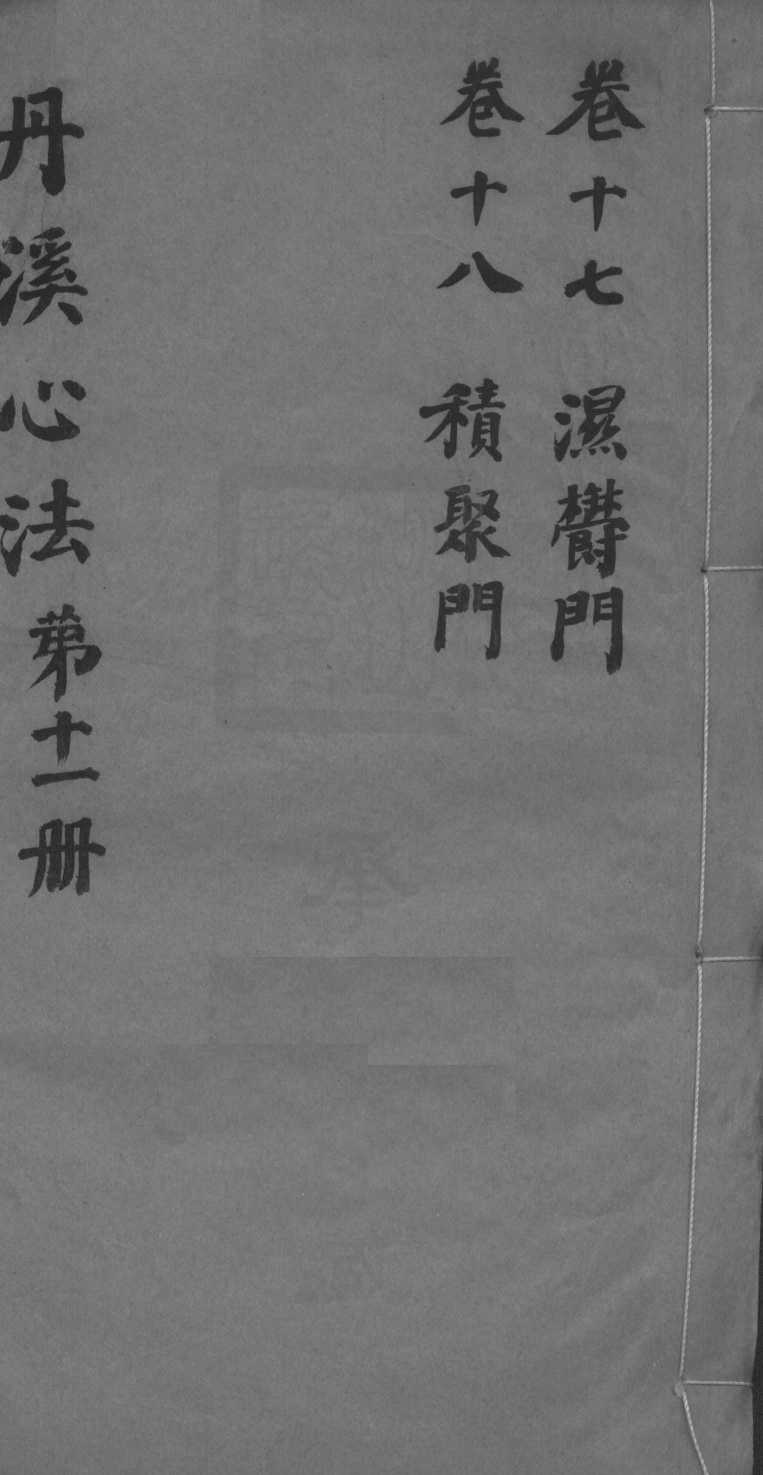 卷十七　濕欝門
卷十八　積聚門
丹溪心法第十一册